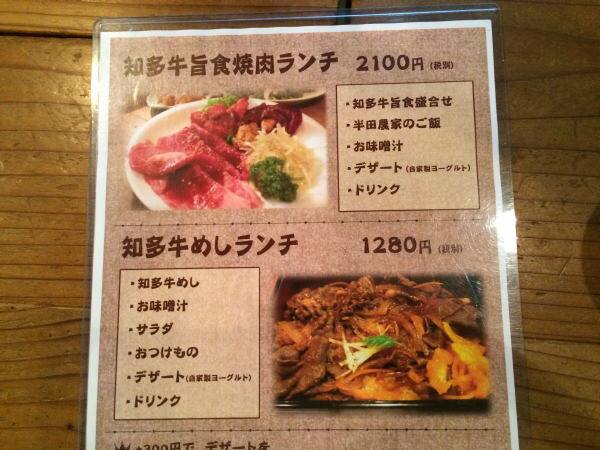 知多牛旨食焼肉ランチ 2100円 (税別)
・知多牛旨食盛合せ
・半田農家のご飯
・お味噌汁
・デザート(自家製ヨーグルト)
・ドリンク
知多牛めしランチ 1280円 (税別)
・知多牛めし
・お味噌汁
・サラダ
・おつけもの
・デザート(自家製ヨーグルト)
・ドリンク
+300円で デザートを